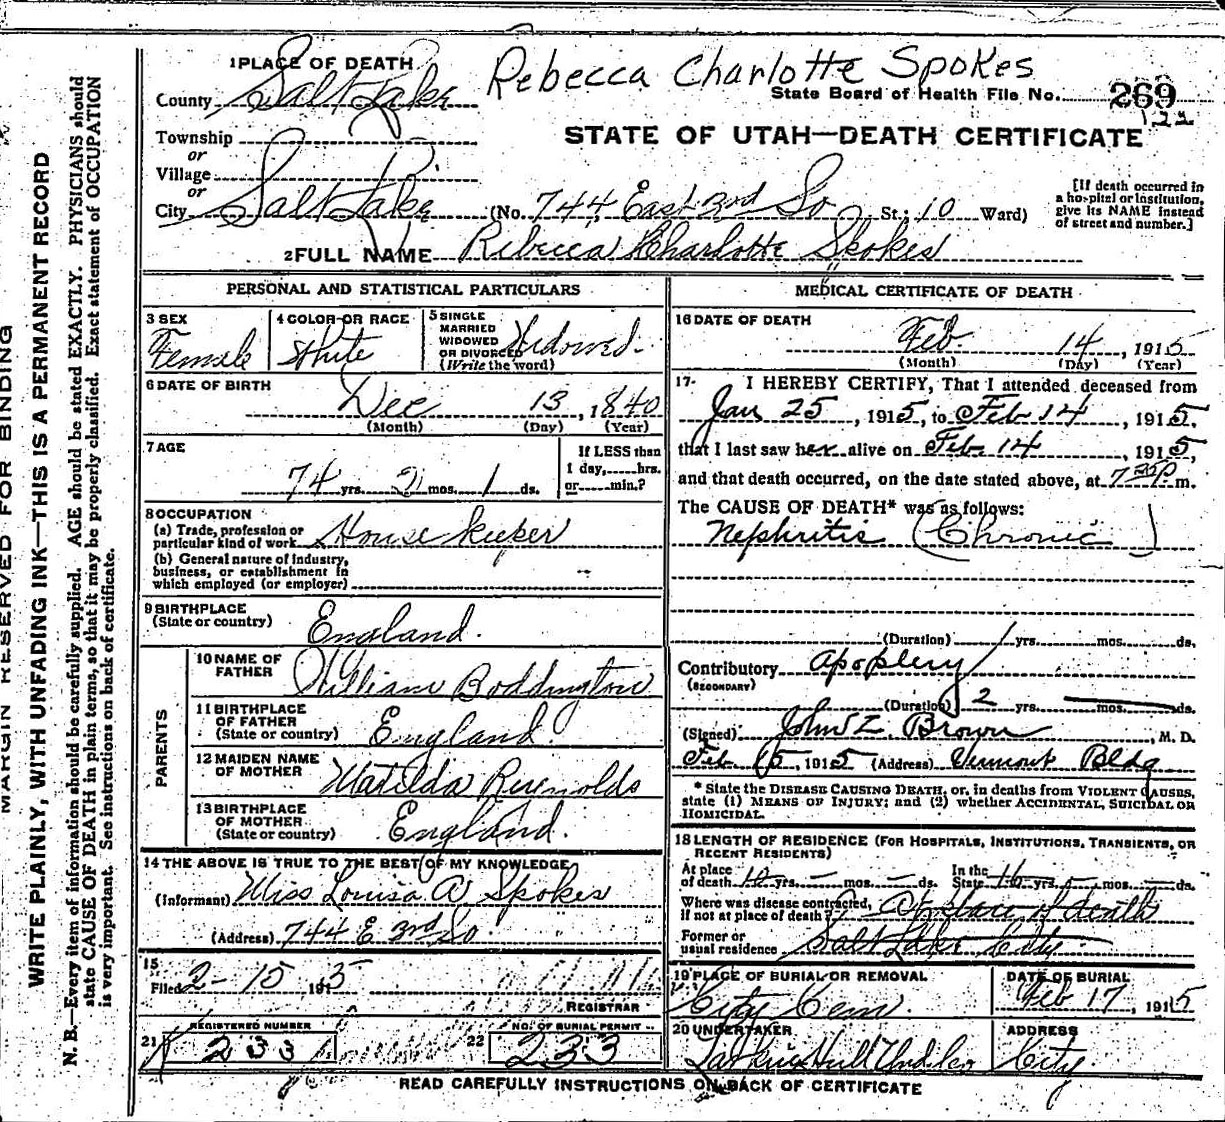 Rebecca Charlotte Spokes
1 PLACE OF DEATH
County Salt Lake
State Board of Health File No. 269
122
Township
or
Village
or
City Salt Lake
STATE OF UTAH—DEATH CERTIFICATE
(No. 744 East 3rd So St.; 10 Ward)
[If death occurred in
a hospital or institution,
give its NAME instead
of street and number.]
2 FULL NAME Rebecca Charlotte Spokes
PERSONAL AND STATISTICAL PARTICULARS
3 SEX
Female
4 COLOR OR RACE
White
5 SINGLE
MARRIED
WIDOWED
OR DIVORCED
(Write the word)
Widowed.
6 DATE OF BIRTH
Dec 13, 1840
(Month) (Day) (Year)
7 AGE
74 yrs. 2 mos. 1 ds.
If LESS than
1 day,......hrs.
or......min.?
8 OCCUPATION
(a) Trade, profession or
particular kind of work House keeper
(b) General nature of industry,
business, or establishment in
which employed (or employer)
9 BIRTHPLACE
(State or country)
England.
PARENTS
10 NAME OF
FATHER
William Boddington
11 BIRTHPLACE
OF FATHER
(State or country)
England.
12 MAIDEN NAME
OF MOTHER
Matilda Reynolds
13 BIRTHPLACE
OF MOTHER
(State or country)
England.
14 THE ABOVE IS TRUE TO THE BEST OF MY KNOWLEDGE
(Informant) Miss Louisa A Spokes
(Address) 744 E 3rd So
15
Filed 2-15 1915
REGISTRAR
21 REGISTERED NUMBER
233
22 NO. OF BURIAL PERMIT
233
MEDICAL CERTIFICATE OF DEATH
16 DATE OF DEATH
Feb 14, 1915
(Month) (Day) (Year)
17- I HEREBY CERTIFY, That I attended deceased from
Jan 25, 1915, to Feb 14, 1915.
that I last saw her alive on Feb 14, 1915,
and that death occurred, on the date stated above, at 7 30 P. m.
The CAUSE OF DEATH* was as follows:
Nephritis (Chronic)
(Duration) 1 yrs. mos. ds.
Contributory Apoplexy
(SECONDARY)
(Duration) 2 yrs. mos. ds.
(Signed) John Z. Brown, M. D.
Feb 15, 1915 (Address) Vermont Bldg
* State the DISEASE CAUSING DEATH, or, in deaths from VIOLENT CAUSES,
state (1) MEANS OF INJURY; and (2) whether ACCIDENTAL, SUICIDAL OR
HOMICIDAL.
18 LENGTH OF RESIDENCE (FOR HOSPITALS, INSTITUTIONS, TRANSIENTS, OR
RECENT RESIDENTS)
At place
of death 10 yrs. — mos. — ds. In the
State 16 yrs. — mos. — ds.
Where was disease contracted,
if not at place of death? At place of death
Former or
usual residence Salt Lake City
19 PLACE OF BURIAL OR REMOVAL
City Cem.
DATE OF BURIAL
Feb 17, 1915
20 UNDERTAKER
ADDRESS
City
READ CAREFULLY INSTRUCTIONS ON BACK OF CERTIFICATE
MARGIN RESERVED FOR BINDING
WRITE PLAINLY, WITH UNFADING INK—THIS IS A PERMANENT RECORD
N. B.—Every item of information should be carefully supplied. AGE should be stated EXACTLY. PHYSICIANS should
state CAUSE OF DEATH in plain terms, so that it may be properly classified. Exact statement of OCCUPATION
is very important. See instructions on back of certificate.